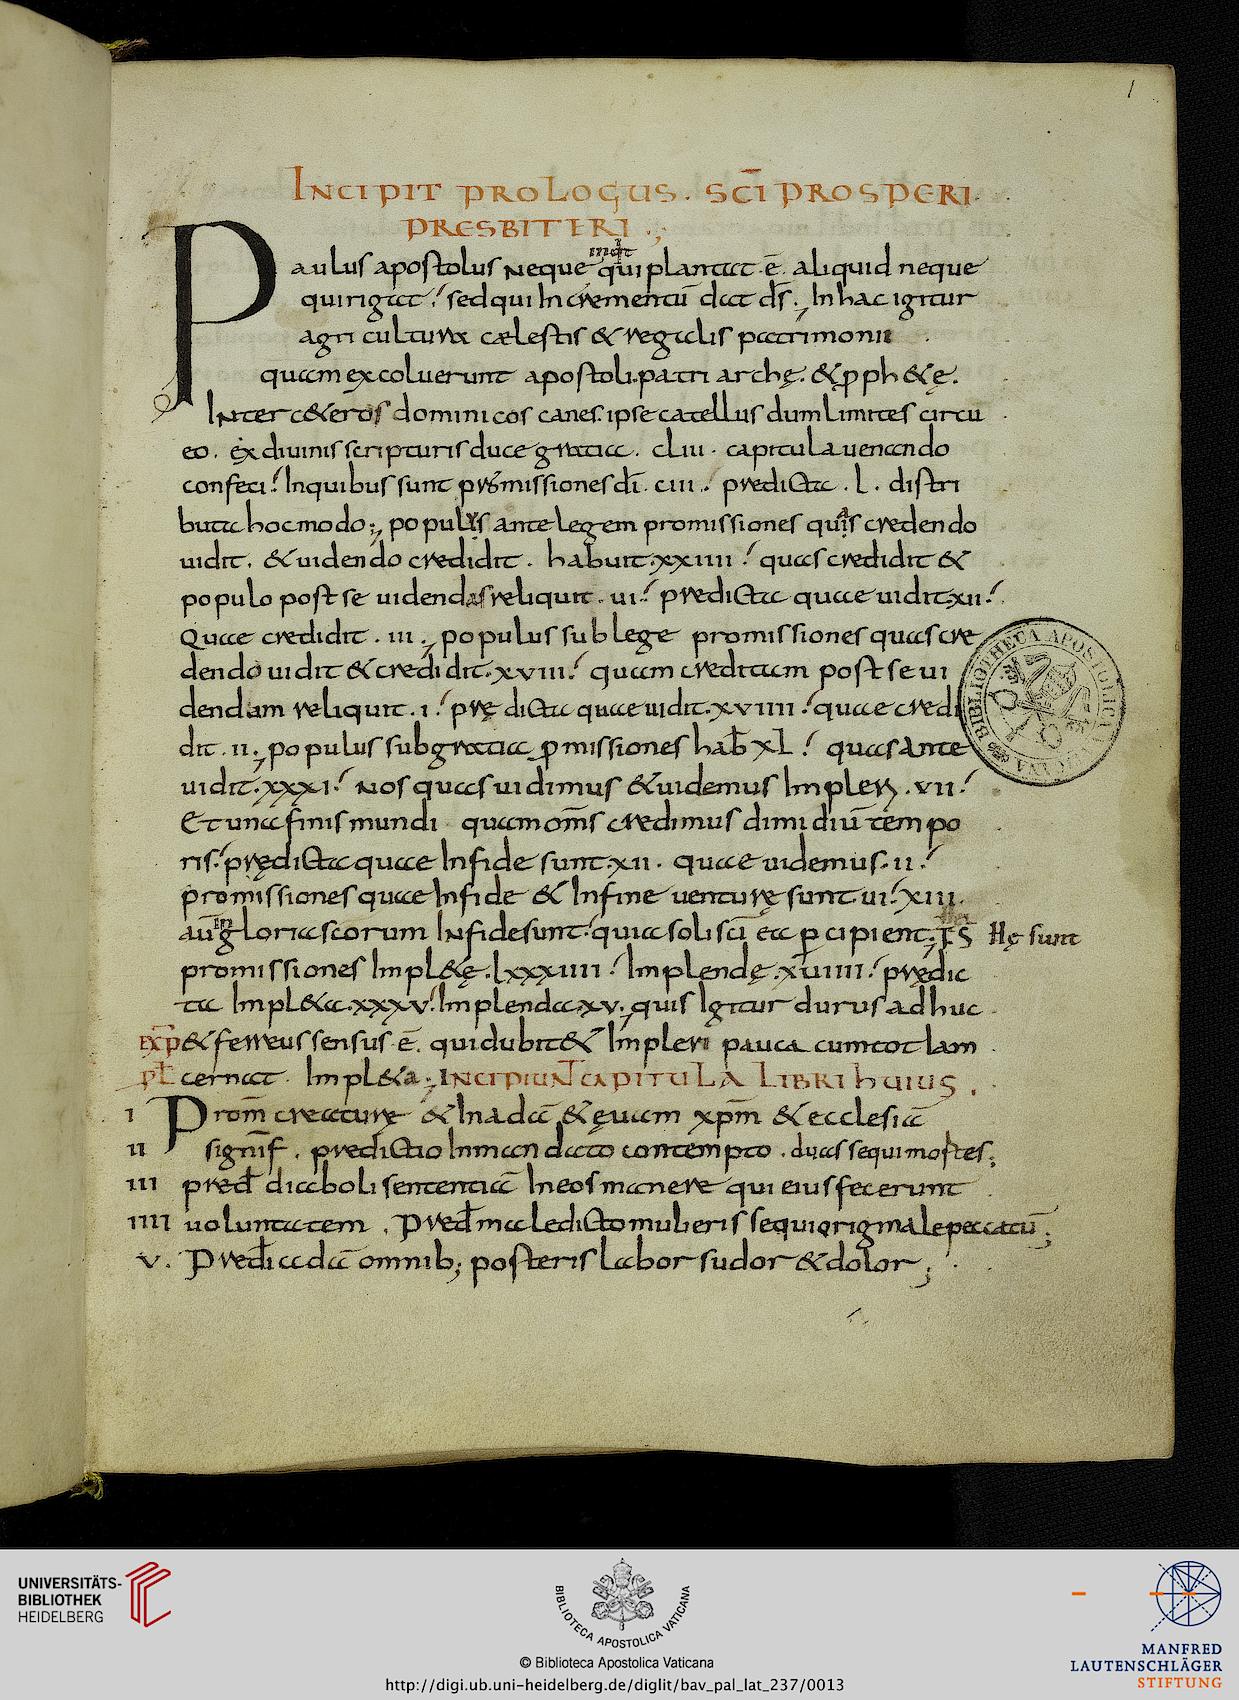 1
INCIPIT PROLOGUS . SCĪ PROSPERI
PRESBITERI .;
inqt
Paulus apostolus neque qui plantat ē. aliquid neque
qui rigat; sed qui Incrementū dat ds̄ ; In hac igitur
agri cultura cælestis & regalis patrimonii
quam excoluerunt apostoli. patriarchę. & ꝓph&ę.
Inter c&eros dominicos canes. ipse catellus dum limites circu
eo. ex divinis scripturis duce gratia. cliii. capitula venando
feci; In quibus sunt promissiones dī. ciii.; predicta .l. distri
buta hoc modo; populus ante legem promissiones quas credendo
vidit. & videndo credidit. habuit. xxiiii; quas credidit &
populo post se videndas reliquit. vi; predicta quae vidit. xii;
Quae credidit . iii.; populus sub lege promissiones quas cre
dendo vidit & credidit. xviii; quam creditam post se vi
dendam reliquit. i; prędicta quae vidit. xviiii; quae credi
dit. ii; populus sub gratia ꝓmissiones hab̄ xl; quas ante
vidit. xxxi; Nos quas vidimus & videmus Impleri. vii;
Et una finis mundi quam om̄s credimus dimidiū tempo
ris; prędicta quae In fide sunt. xii. quae videmus. ii;
promissiones quae In fide & In fine venturę sunt. vi; xiii.
in
aūgloria scorum In fide sunt; quia soli sci ea percipient; Hę sunt
promissiones Impl&ę. lxxxiiii; Implendę. xviiii; prędic
ta Impl&a. xxxv; Implenda. xv; quis Igitur durus adhuc
exp̄ & ferreus sensus ē. qui dubit& Impleri pauca cum tot Iam
pl̄ cernat. Impl&a; INCIPIUNT CAPITULA LIBRI HUIUS .
I Prom̄ creaturę & In adā & ęvam xpm̄ & ecclesiā
II signif̄. predictio In mandato contempto. duas sequi mortes;
III pred̄ diaboli sententiā In eos manere qui eius fecerunt
IIII voluntatem . Pred̄ maledicto mulieris sequi originale peccatū;
V. Pred̄ adā omnib; posteris labor sudor & dolor;
BIBLIOTHECA APOSTOLICA VATICANA
UNIVERSITÄTS-
BIBLIOTHEK
HEIDELBERG
BIBLIOTECA APOSTOLICA VATICANA
© Biblioteca Apostolica Vaticana
http://digi.ub.uni-heidelberg.de/diglit/bav_pal_lat_237/0013
MANFRED
LAUTENSCHLÄGER
STIFTUNG